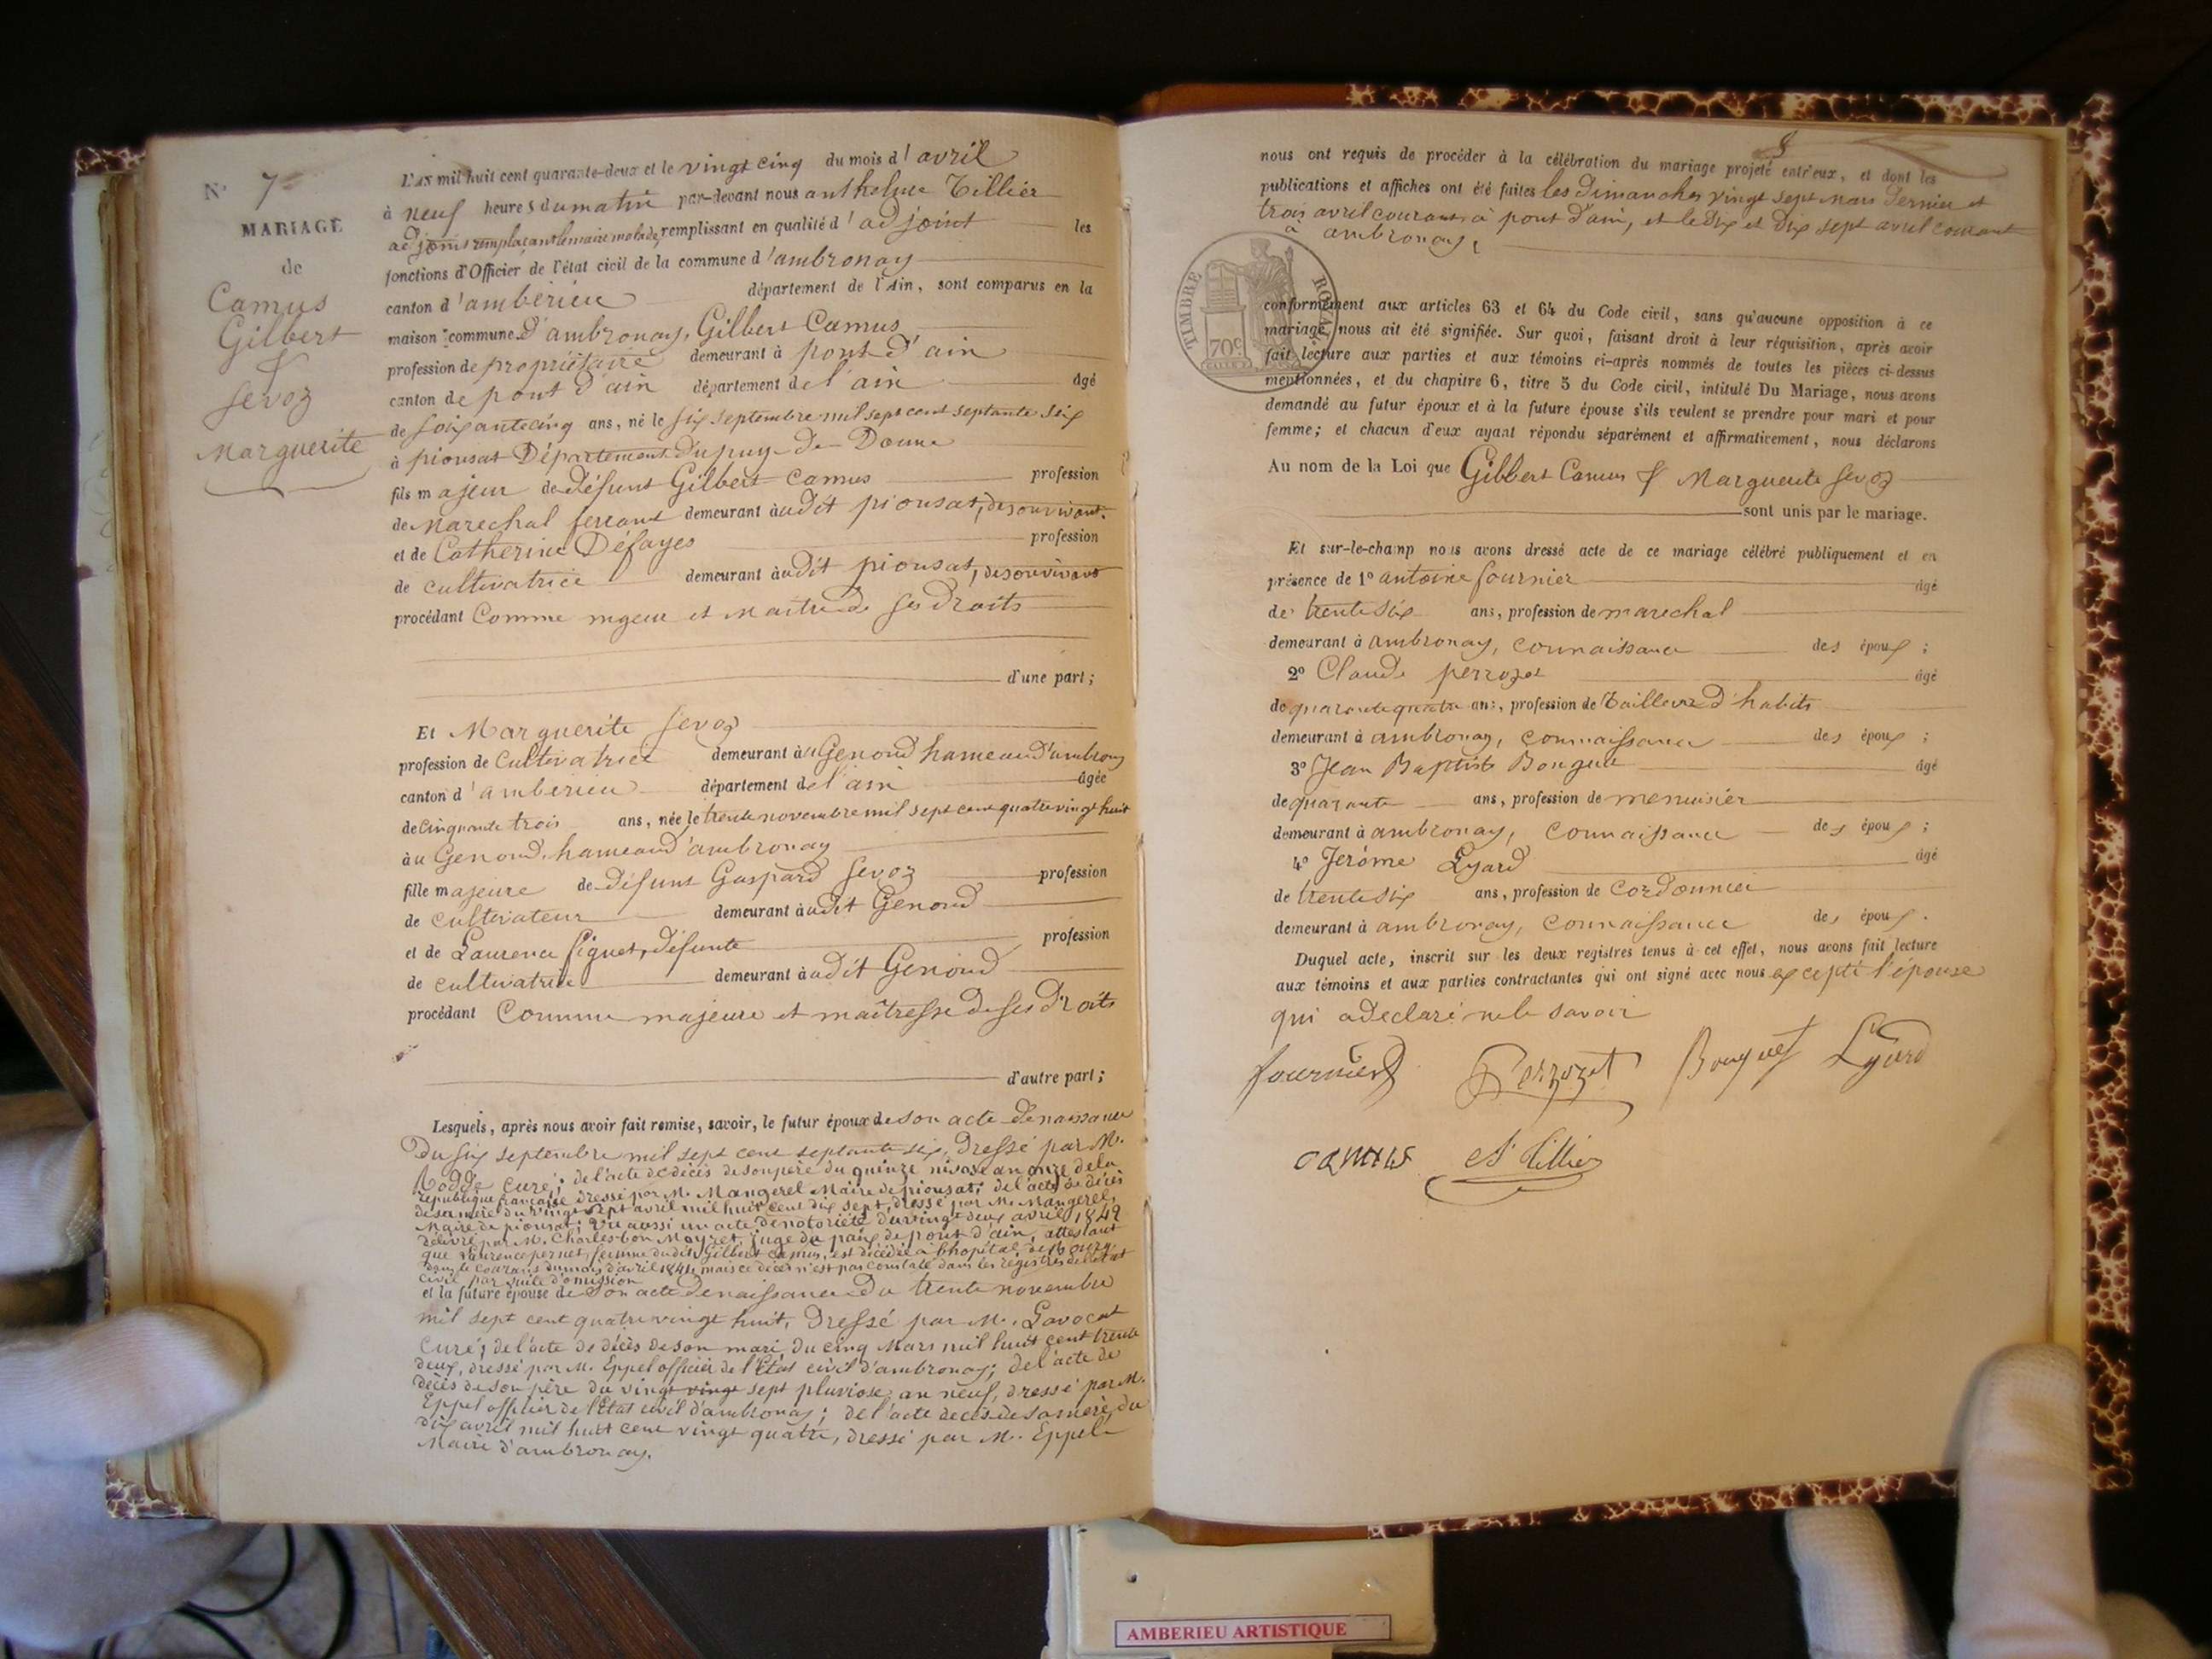 N° 7
MARIAGE
de
Camus
Gilbert
&
Sevoz
Marguerite
L'AN mil huit cent quarante-deux et le vingt cinq du mois d'avril
à neuf heures du matin par-devant nous anthelme Tillier
adjoint remplaçant le maire malade, remplissant en qualité d'adjoint les
fonctions d'Officier de l'état civil de la commune d'ambronay
canton d'ambérieu département de l'Ain, sont comparus en la
maison commune d'ambronay, Gilbert Camus
profession de propriétaire demeurant à pont d'ain
canton de pont d'ain département de l'ain âgé
de soixante cinq ans, né le six septembre mil sept cent septante six
à pionsat Département du puy-de-Dome
fils majeur de défunt Gilbert Camus profession
de Marechal ferrant demeurant audit pionsat, de son vivant.
et de Catherine Défayes profession
de cultivatrice demeurant audit pionsat, de son vivant
procédant Comme mgeur et Maitre de ses droits
d'une part;
Et Marguerite Sevoz
profession de Cultivatrice demeurant au Genoud hameau d'ambrony
canton d'ambérieu département de l'ain âgée
de Cinquante trois ans, née le trente novembre mil sept cent quatre vingt huit
au Genoud, hameau d'ambronay
fille majeure de défunt Gaspard Sevoz profession
de cultivateur demeurant audit Genoud
et de Laurence Piguet, défunte profession
de cultivatrice demeurant audit Genoud
procédant Comme majeure et maîtresse de ses droits
d'autre part;
Lesquels, après nous avoir fait remise, savoir, le futur époux de son acte de naissance
Du six septembre mil sept cent septante six, Dressé par M.
curé; de l'acte de décès de son père du quinze nivose an onze de la
république française dressé par M. Mangerel Maire de pionsat; de l'acte de décès
de sa mère du vingt sept avril mil huit cent dix sept, dressé par M. Mangerel,
Maire de pionsat; Vu aussi un acte de notoriété du vingt deux avril 1842
délivré par M. Charles Mayret juge de paix de pont d'ain, attestant
que Laurence pernet, femme dudit Gilbert Camus, est décédée à l'hopital de Bourg
dans le courant du mois d'avril 1841, mais ce décès n'est pas constaté dans les régistres de l'état
civil par suite d'omission
et la future épouse de Son acte de naissance du trente novembre
mil sept cent quatre vingt huit, Dressé par M. Lavocat
Curé; de l'acte de décès de son mari, du cinq Mars mil huit cent trente
deux, dressé par M. Eppel officier de l'Etat civil d'ambronay; de l'acte de
décès de son père du vingt vingt sept pluviose an neuf, dressé par M.
Eppel officier de l'Etat civil d'ambronay; de l'acte décès de sa mère, du
dix avril mil huit cent vingt quatre, dressé par M. Eppel
Maire d'ambronay.
8
nous ont requis de procéder à la célébration du mariage projeté entr'eux, et dont les
publications et affiches ont été faites les Dimanches vingt sept mars Dernier et
trois avril courant à pont d'ain, et le dix et dix sept avril courant
à ambronay,
TIMBRE ROYAL
70c
conformément aux articles 63 et 64 du Code civil, sans qu'aucune opposition à ce
mariage nous ait été signifiée. Sur quoi, faisant droit à leur réquisition, après avoir
fait lecture aux parties et aux témoins ci-après nommés de toutes les pièces ci-dessus
mentionnées, et du chapitre 6, titre 5 du Code civil, intitulé Du Mariage, nous avons
demandé au futur époux et à la future épouse s'ils veulent se prendre pour mari et pour
femme; et chacun d'eux ayant répondu séparément et affirmativement, nous déclarons
Au nom de la Loi que Gilbert Camus & Marguerite Sevoz
sont unis par le mariage.
Et sur-le-champ nous avons dressé acte de ce mariage célébré publiquement et en
présence de 1° antoine fournier âgé
de trente six ans, profession de marechal
demeurant à ambronay, connaissance des époux;
2° Claude perrozet âgé
de quarante quatre ans, profession de Tailleur d'habits
demeurant à ambronay, connaissance des époux;
3° Jean Baptiste Bouguet âgé
de quarante ans, profession de menuisier
demeurant à ambronay, connaissance des époux;
4° Jerôme Lyard âgé
de trente six ans, profession de cordonnier
demeurant à ambronay, connaissance des époux.
Duquel acte, inscrit sur les deux registres tenus à cet effet, nous avons fait lecture
aux témoins et aux parties contractantes qui ont signé avec nous excepté l'épouse
qui a déclaré ne le savoir
fournier Perrozet Bouguet Lyard
camus A Tillier
AMBERIEU ARTISTIQUE